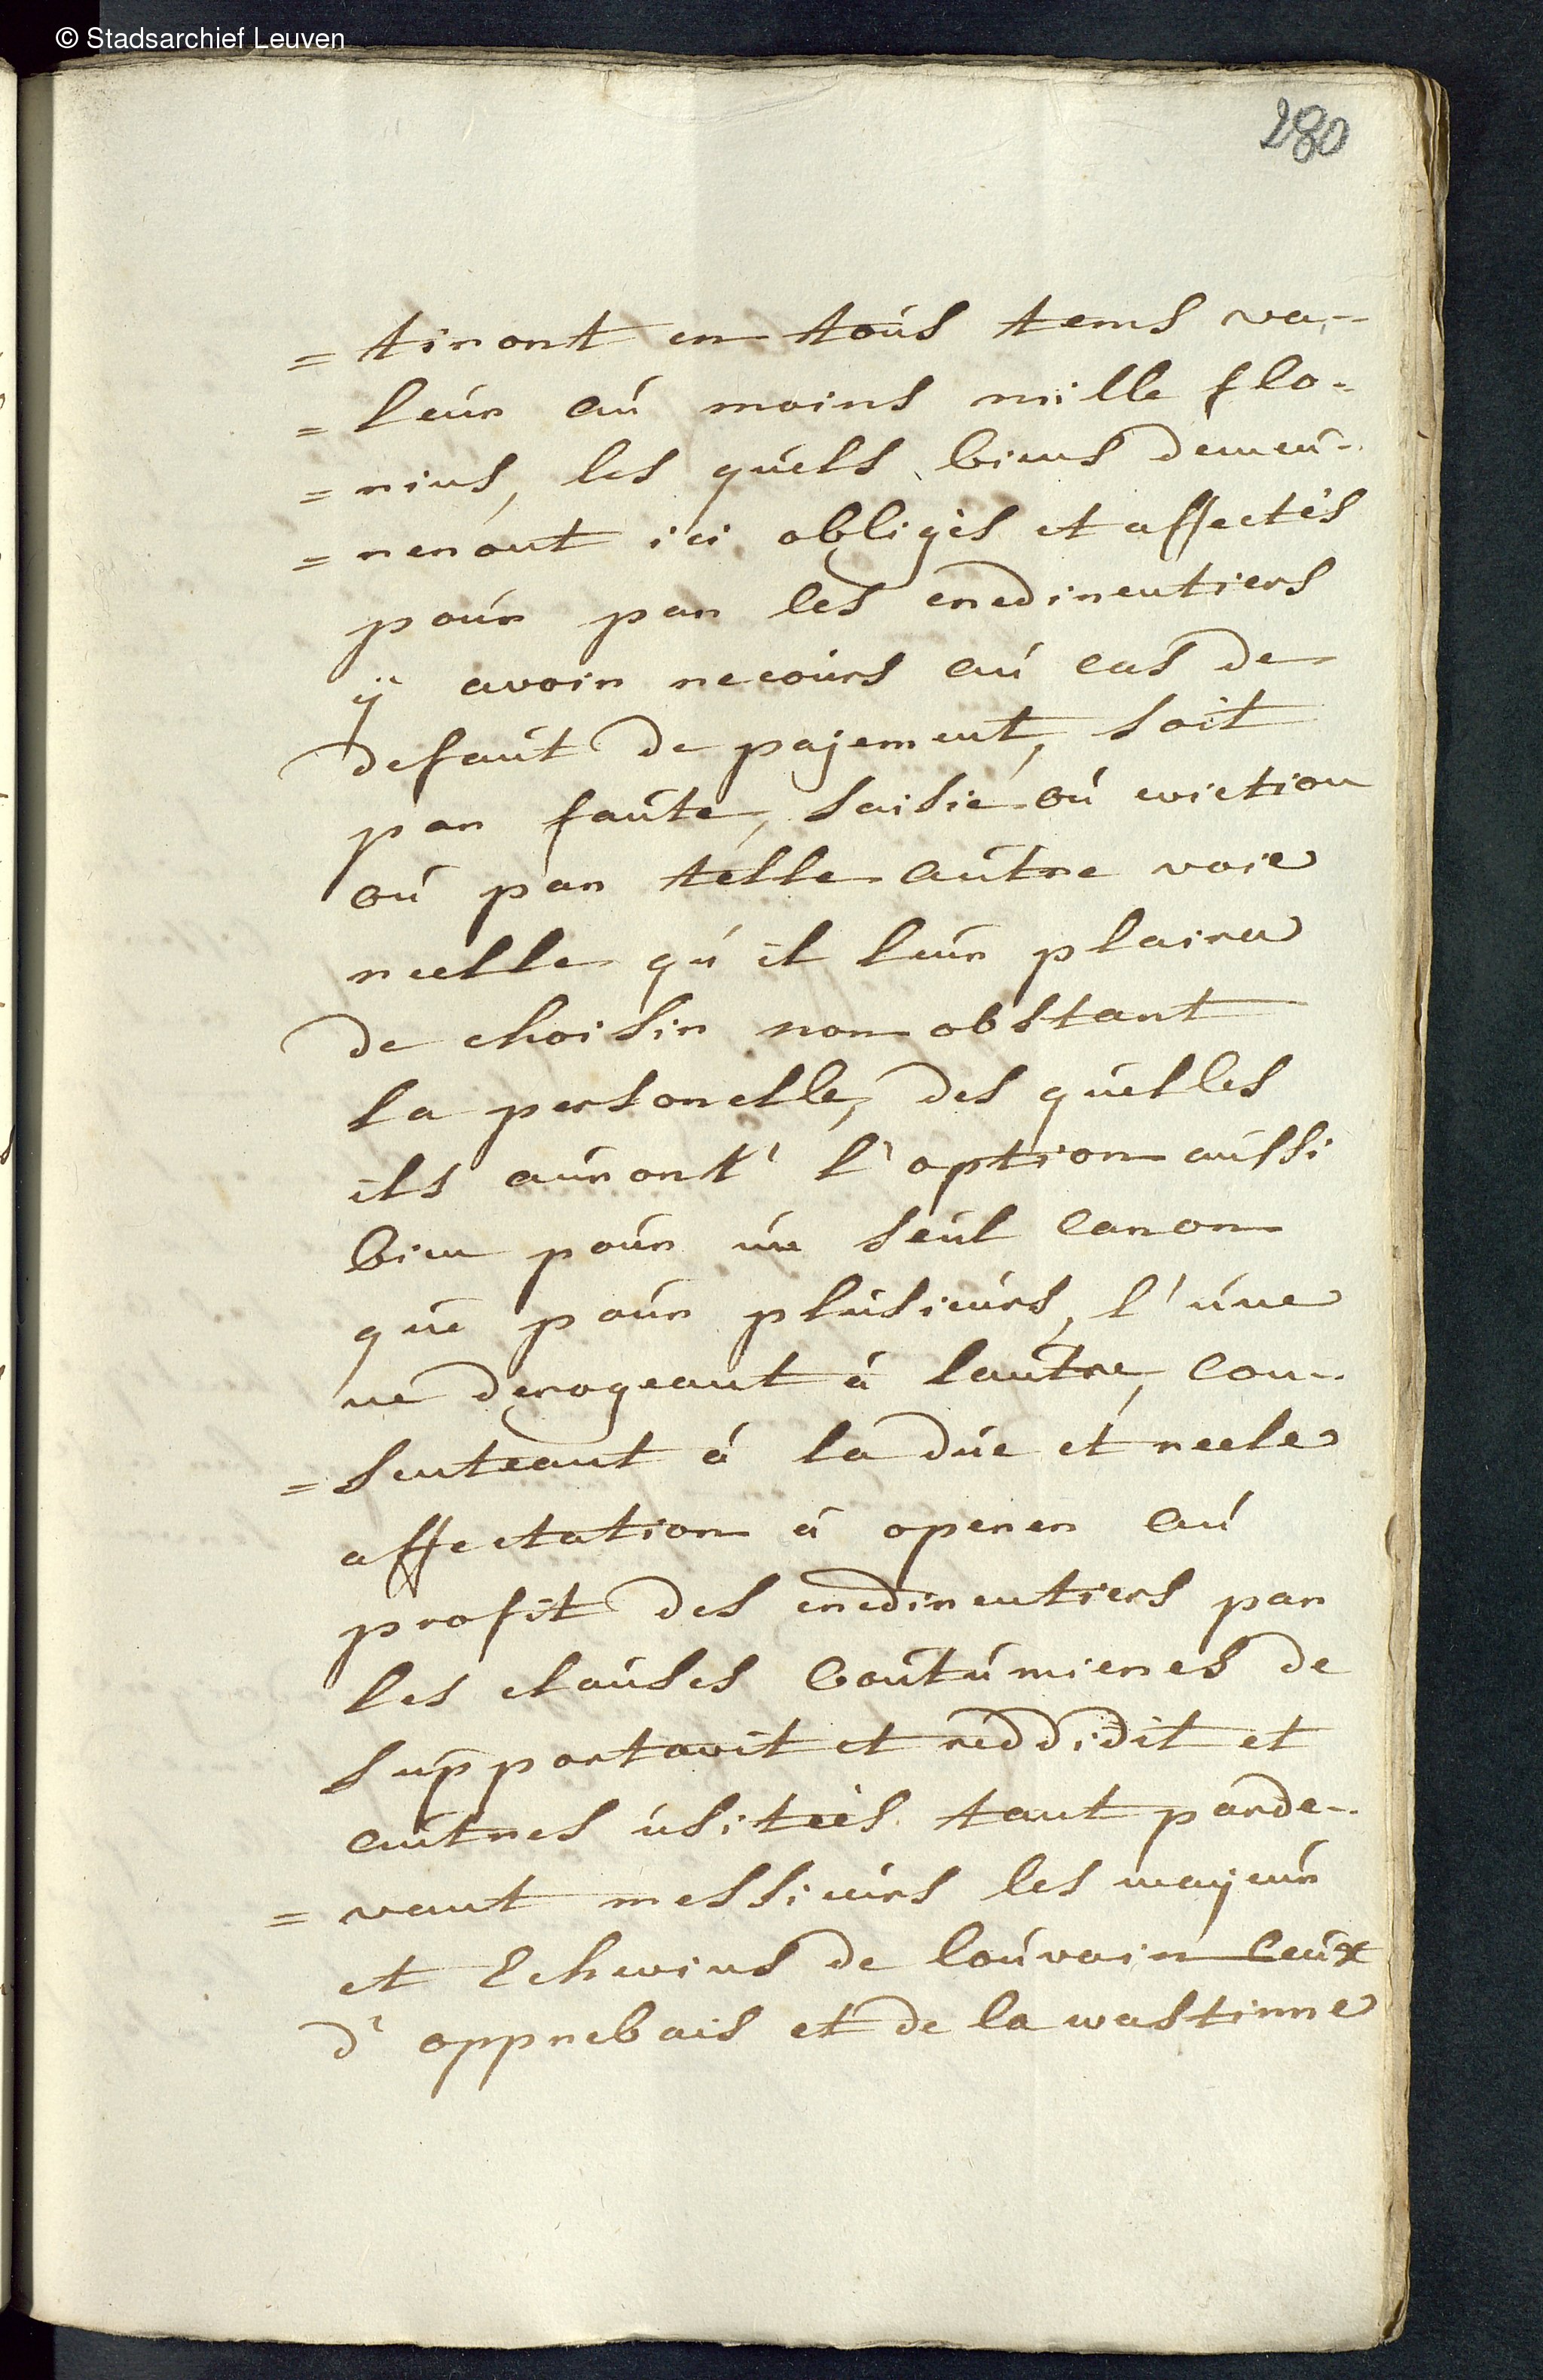 © Stadsarchief Leuven
280
= tiront en tous tems va-
= leur au moins mille flo-
= rins, les quels biens demeu-
= reront ici obligés et affectés
pour par les credirentiers
ÿ avoir recours au cas de
defaut de pajement, soit
par faute, saisie ou eviction
ou par telle autre voie
reelle qu'il leur plaira
de choisir non obstant
la personelle, des quelles
ils auront l'option aussi
bien pour un seul canon
que pour plusieurs, l'une
ne derogeant á lautre, con-
= senteant á la düe et reele
affectation á operer au
profit des credirentiers par
les clauses coutumieres de
supportavit et reddidit et
autres usiteés tant parde-
= vant messieurs les mayeur
et Echevins de louvain ceux
d'opprebais et de la wastinne